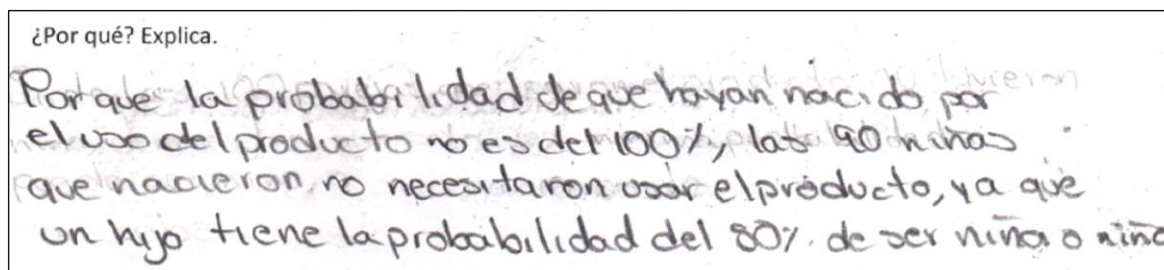 ¿Por qué? Explica.
Porque la probabilidad de que hayan nacido por
el uso del producto no es del 100%, las 90 niñas
que nacieron no necesitaron usar el producto, ya que
un hijo tiene la probabilidad del 80% de ser niña o niño